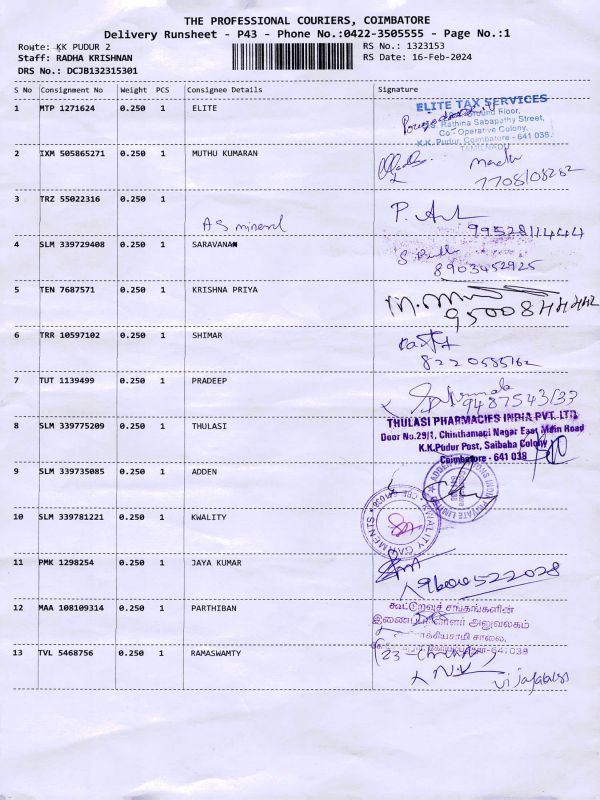 THE PROFESSIONAL COURIERS, COIMBATORE
Delivery Runsheet - P43 - Phone No.:0422-3505555 - Page No.:1
Route: KK PUDUR 2
RS No.: 1323153
Staff: RADHA KRISHNAN
RS Date: 16-Feb-2024
DRS No.: DCJB132315301
S No Consignment No Weight PCS Consignee Details Signature
1 MTP 1271624 0.250 1 ELITE
ELITE TAX SERVICES
Ground Floor,
Rathina Sabapathy Street,
Co-Operative Colony,
K.K. Pudur, Coimbatore - 641 038.
TAMILNADU
2 IXM 505865271 0.250 1 MUTHU KUMARAN
7708108262
3 TRZ 55022316 0.250 1
AS mineral
9952811444
4 SLM 339729408 0.250 1 SARAVANAN
8903452925
5 TEN 7687571 0.250 1 KRISHNA PRIYA
6 TRR 10597102 0.250 1 SHIMAR
8220585162
7 TUT 1139499 0.250 1 PRADEEP
9487543133
8 SLM 339775209 0.250 1 THULASI
THULASI PHARMACIES INDIA PVT. LTD
Door No.29/1, Chinthamani Nagar East Main Road
K.K.Pudur Post, Saibaba Colony
Coimbatore - 641 038
9 SLM 339735085 0.250 1 ADDEN
10 SLM 339781221 0.250 1 KWALITY
KWALITY GARMENTS
11 PMK 1298254 0.250 1 JAYA KUMAR
9600522028
12 MAA 108109314 0.250 1 PARTHIBAN
கூட்டுறவுச் சங்கங்களின்
அலுவலகம்
சாலை,
641038
13 TVL 5468756 0.250 1 RAMASWAMTY
N.V